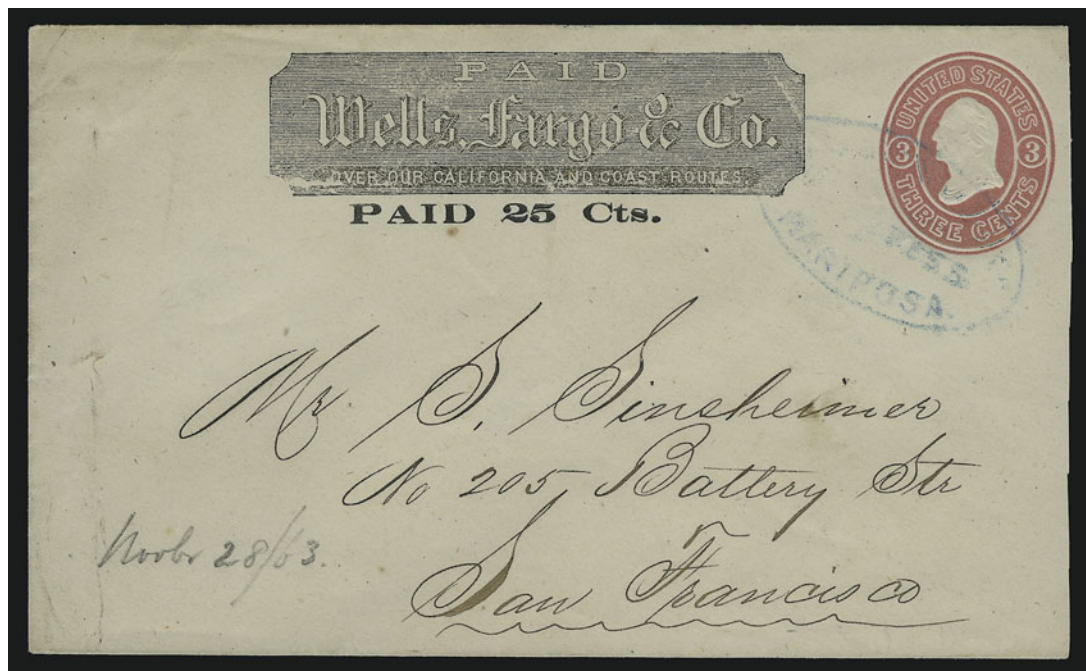 PAID
Wells, Fargo & Co.
OVER OUR CALIFORNIA AND COAST ROUTES.
PAID 25 Cts.
UNITED STATES
3 3
THREE CENTS
MARIPOSA.
Mr. S. Sinsheimer
No 205, Battery Str
San Francisco
Novbr 28/63.